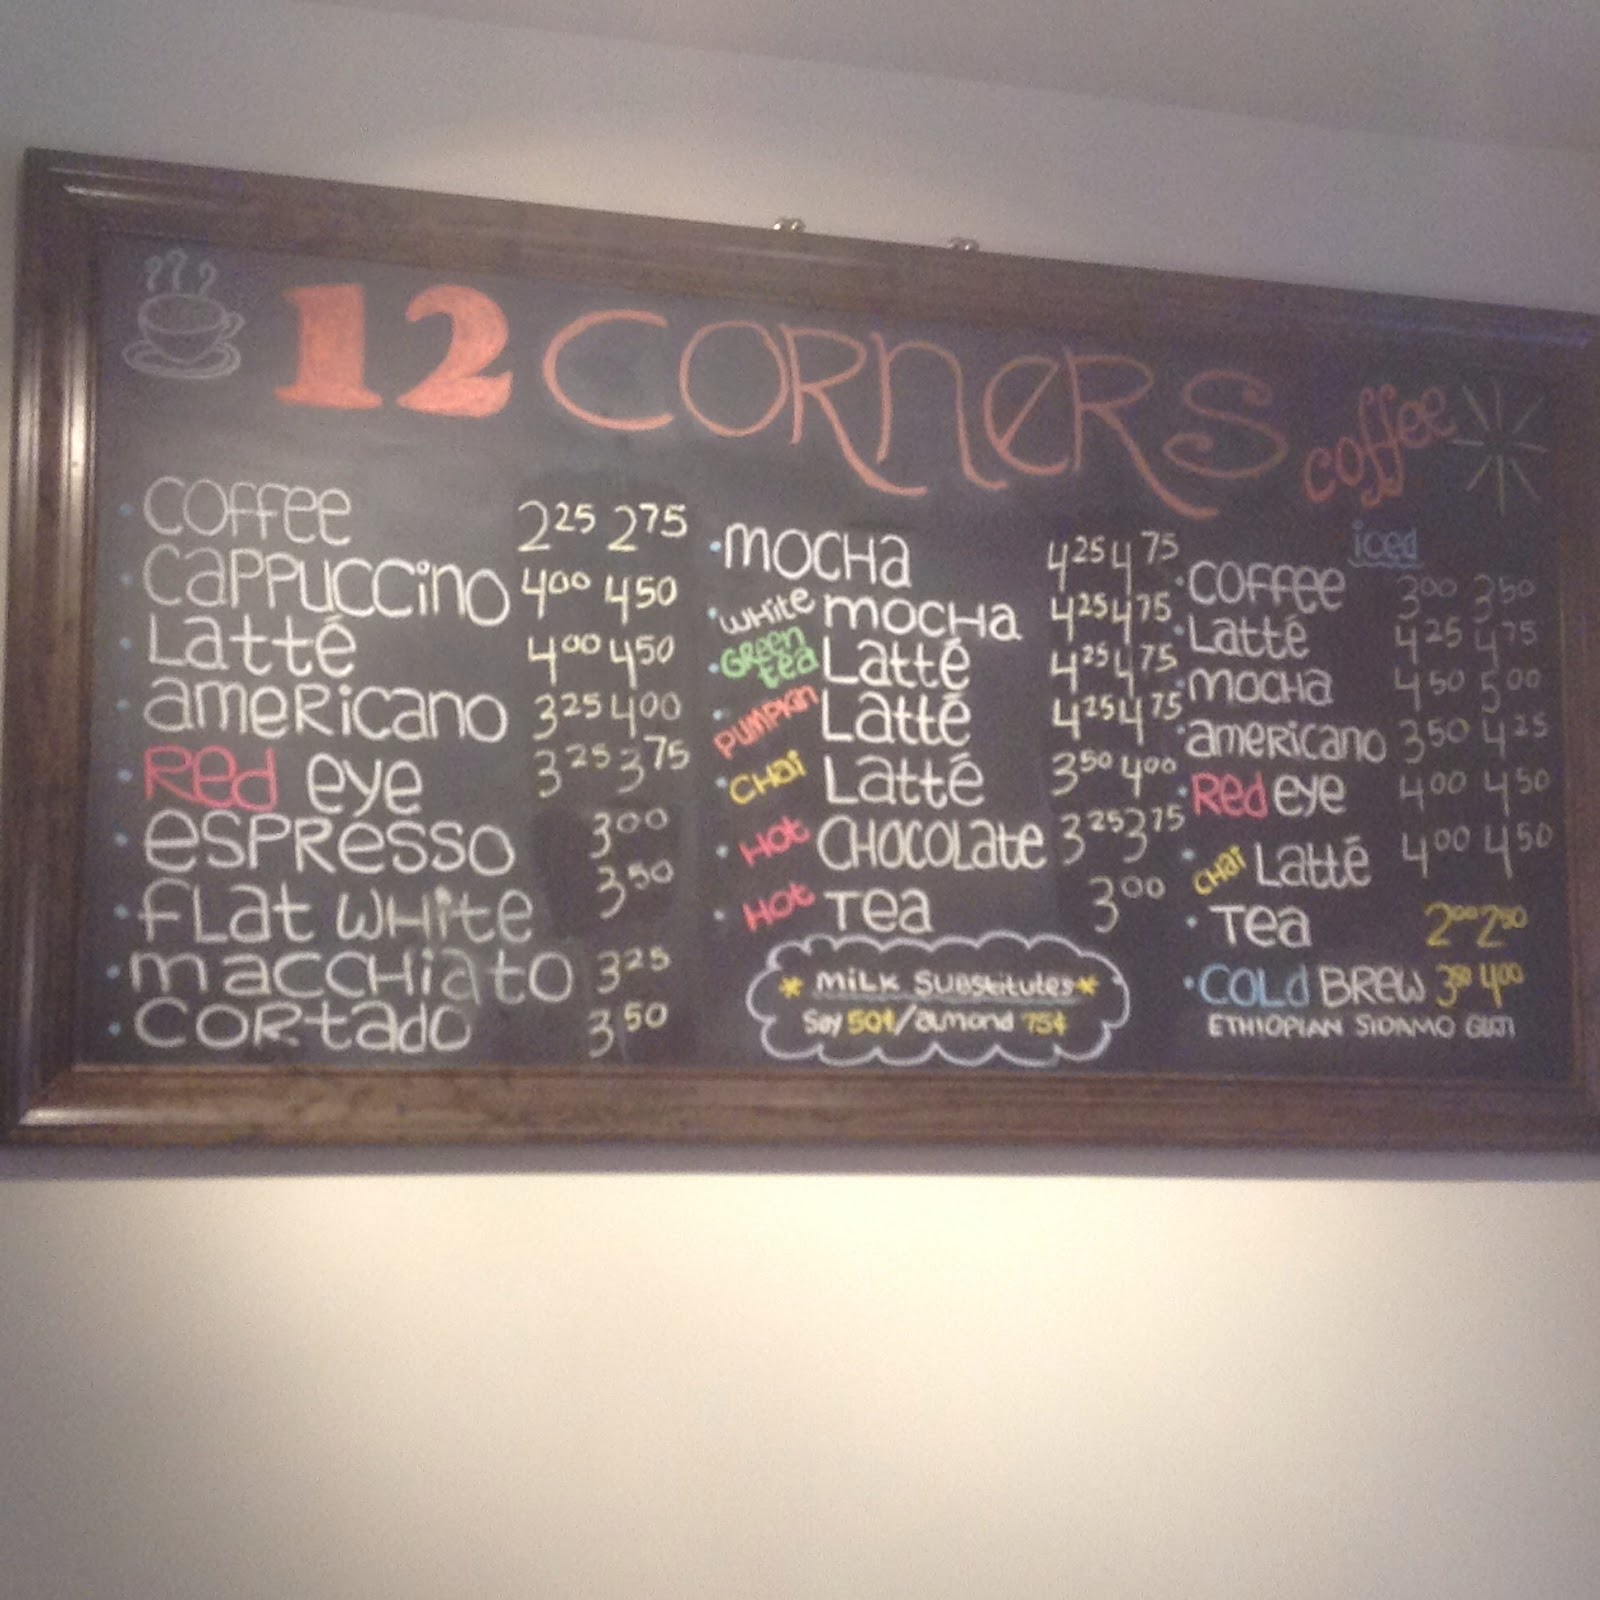 12 CORNERS coffee
COFFEE 2 25 2 75
CAPPUCCINO 4 00 4 50
LATTÉ 4 00 4 50
AMERICANO 3 25 4 00
Red eye 3 25 3 75
ESPRESSO 3 00
FLAT WHITE 3 50
MACCHIATO 3 25
CORTADO 3 50
MOCHA 4 25 4 75
WHITE MOCHA 4 25 4 75
GREEN tea LATTÉ 4 25 4 75
PUMPKIN LATTÉ 4 25 4 75
CHAI LATTÉ 3 50 4 00
HOT CHOCOLATE 3 25 3 75
HOT TEA 3 00
* MILK SUBSTITUTES *
Soy 50¢/almond 75¢
iced
COFFEE 3 00 3 50
LATTÉ 4 25 4 75
MOCHA 4 50 5 00
AMERICANO 3 50 4 25
Red eye 4 00 4 50
CHAI LATTÉ 4 00 4 50
TEA 2 00 2 50
COLD BREW 3 50 4 00
ETHIOPIAN SIDAMO GUJI